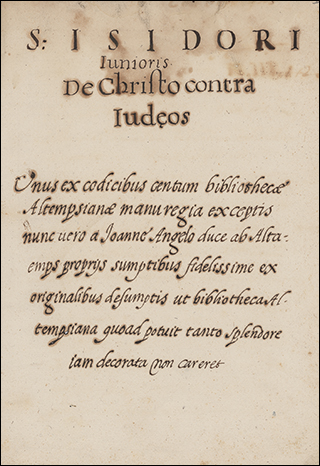 S: ISIDORI
Iunioris
De Christo contra
Iudęos
Unus ex codicibus centum bibliothecæ
Altempsianæ manu regia exceptis
nunc vero a Ioanne Angelo duce ab Alta-
emps proprijs sumptibus fidelissime ex
originalibus desumptis ut bibliotheca Al-
tempsiana quoad potuit tanto splendore
iam decorata non careret